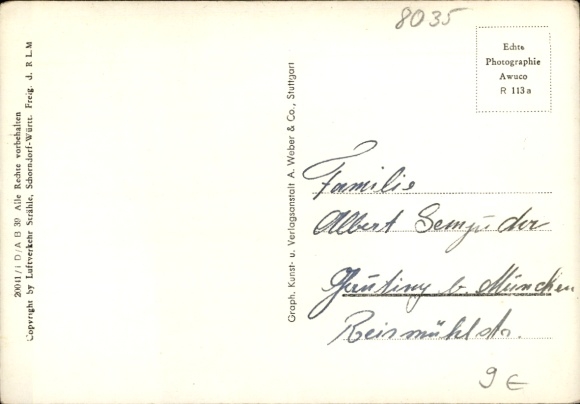 8035
Echte
Photographie
Awuco
R 113 a
20041/1 D/A B 39 Alle Rechte vorbehalten
Copyright by Luftverkehr Strähle, Schorndorf-Württ. Freig. d. R L M
Graph. Kunst- u. Verlagsanstalt A. Weber & Co., Stuttgart
Familie
Albert
Gauting b. München
Reismühlstr.
9 €